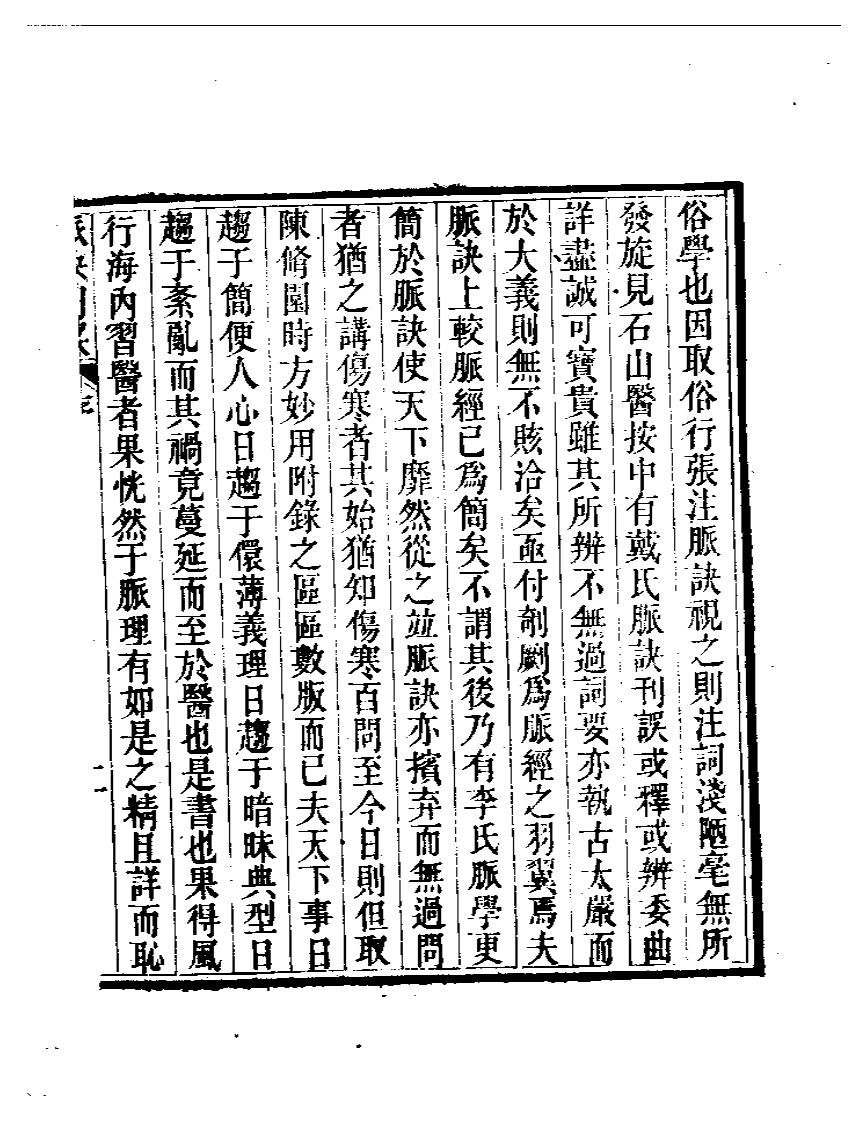 俗學也因取俗行張注脈訣視之則注詞淺陋毫無所
發旋見石山醫按中有戴氏脈訣刊誤或釋或辨委曲
詳盡誠可寶貴雖其所辨不無過詞要亦執古太嚴而
於大義則無不賅洽矣亟付剞劂爲脈經之羽翼焉夫
脈訣上較脈經已爲簡矣不謂其後乃有李氏脈學更
簡於脈訣使天下靡然從之並脈訣亦擯弃而無過問
者猶之講傷寒者其始猶知傷寒百問至今日則但取
陳脩園時方妙用附錄之區區數版而已夫天下事日
趨于簡便人心日趨于儇薄義理日趨于暗昧典型日
趨于紊亂而其禍竟蔓延而至於醫也是書也果得風
行海內習醫者果恍然于脈理有如是之精且詳而恥
脈訣刊誤 序 二